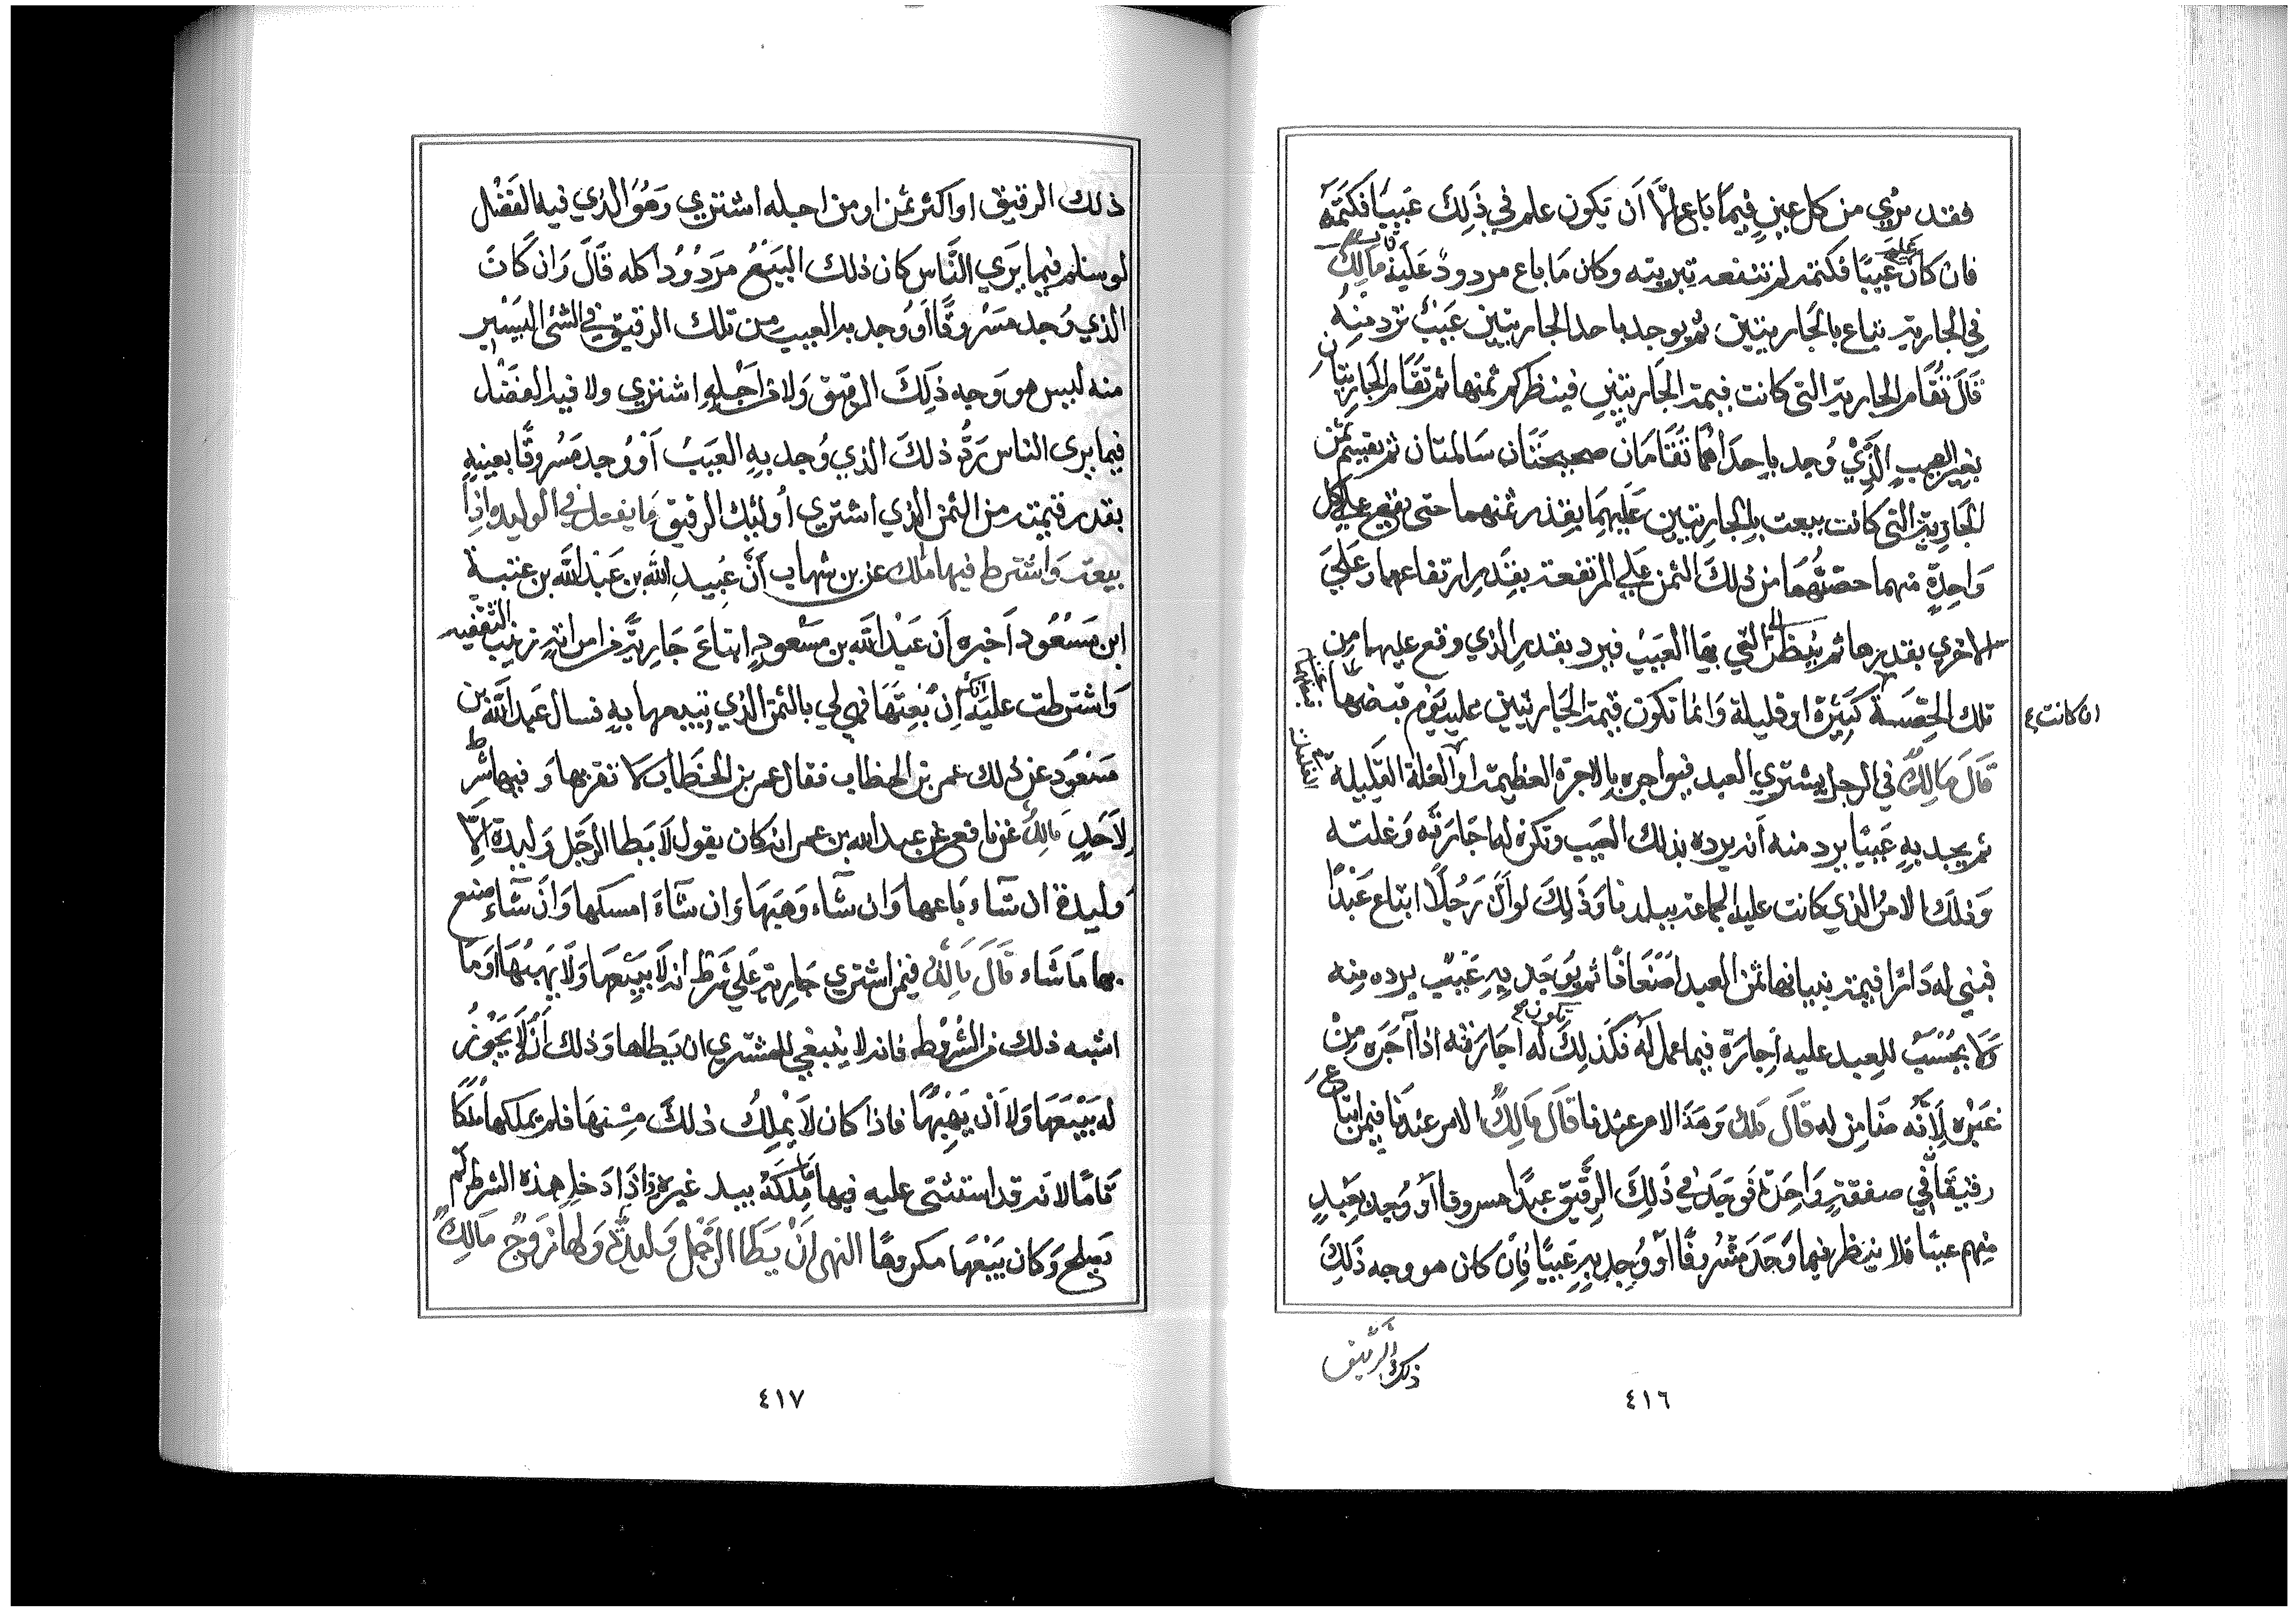 فقد بري من كل عيب فيما باع إلا أن يكون علم في ذلك عيبا فكتمه
فان كان علم عيبا فكتمه لم تنفعه تبريته وكان ما باع مردود عليه قال مالك
في الجارية تباع بالجاريتين ثم يوجد باحد الجاريتين عيب ترد منه
قال تقام الجارية التي كانت قيمة الجاريتين فينظر كم ثمنها ثم تقام الجاريتان
بغير العيب الذي وجد باحداهما تقامان صحيحتان سالمتان ثم يقسم ثمن
الجارية التي كانت بيعت بالجاريتين عليهما بقدر ثمنهما حتى يقع على كل
واحدة منهما حصتهما من ذلك الثمن على المرتفعة بقدر ارتفاعها وعلى
الاخري بقدرها ثم ينظر الى التي بها العيب فيرد بقدر الذي وقع عليها من
تلك الحصة كثيرة او قليلة وانما تكون قيمة الجاريتين عليه يوم قبضهما
ان كانت
قال مالك في الرجل يشتري العبد فيواجره بالاجرة العظيمة او الغلة القليلة
ثم يجد به عيبا يرد منه أنه يرده بذلك العيب وتكون له اجارته وغلته
وذلك الامر الذي كانت عليه الجماعة ببلدنا وذلك لو أن رجلا ابتاع عبدا
فبنى له دارا قيمة بنيانها ثمن العبد اضعافا ثم يوجد به عيب يرده منه
ولا يحسب للعبد عليه اجارة فيما عمل له فكذلك تكون له اجارته اذا آجره من
غيره لأنه ضامن له قال ملك وهذا الامر عندنا قال مالك الامر عندنا فيمن ابتاع
رقيقا في صفقة واحدة فوجد في ذلك الرقيق عبدا مسروقا أو وجد بعبد
منهم عيبا فلا ينظر فيما وجد مسروقا أو وجد به عيبا فإن كان هو وجه ذلك
ذلك الرقيق
٤١٦
ذلك الرقيق او اكثر ثمن او من اجله اشتري وهو الذي فيه الفضل
لو سلم فيما يرى الناس كان ذلك البيع مردودا كله قال وان كان
الذي وجد مسروقا أو وجد به العيب من تلك الرقيق في الشئ اليسير
منه ليس هو وجه ذلك الرقيق ولا من أجله اشتري ولا فيه الفضل
فيما يرى الناس رد ذلك الذي وجد به العيب أو وجد مسروقا بعينه
بقدر قيمته من الثمن الذي اشترى أولئك الرقيق ما يفعل في الوليدة اذا
بيعت واشترط فيها ملك عن بن شهاب أن عبيد الله بن عبد الله بن عتبة
ابن مسعود أخبره أن عبد الله بن مسعود ابتاع جارية من امراته زينب الثقفية
واشترطت عليه انك إن بعتها فهي لي بالثمن الذي تبيعها به فسال عبد الله بن
مسعود عن ذلك عمر بن الخطاب فقال عمر بن الخطاب لا تقربها وفيها شرط
لأحد مالك عن نافع عن عبد الله بن عمر انه كان يقول لا يطا الرجل وليدة الا
وليدة ان شاء باعها وان شاء وهبها وان شاء امسكها وان شاء صنع
بها ما شاء قال مالك فيمن اشتري جارية على شرط انه لا يبيعها ولا يهبها أو ما
اشبه ذلك من الشروط فانه لا ينبغي للمشتري ان يطاها وذلك أنه لا يجوز
له بيعها ولا أن يهبها فاذا كان لا يملك ذلك منها فلم يملكها ملكا
تاما لانه قد استثنى عليه فيها ما ملكه بيد غيره فاذا دخل هذه الشرط لم
يصلح وكان بيعها مكروها النهى ان يطا الرجل وليدة ولها زوج مالك
٤١٧